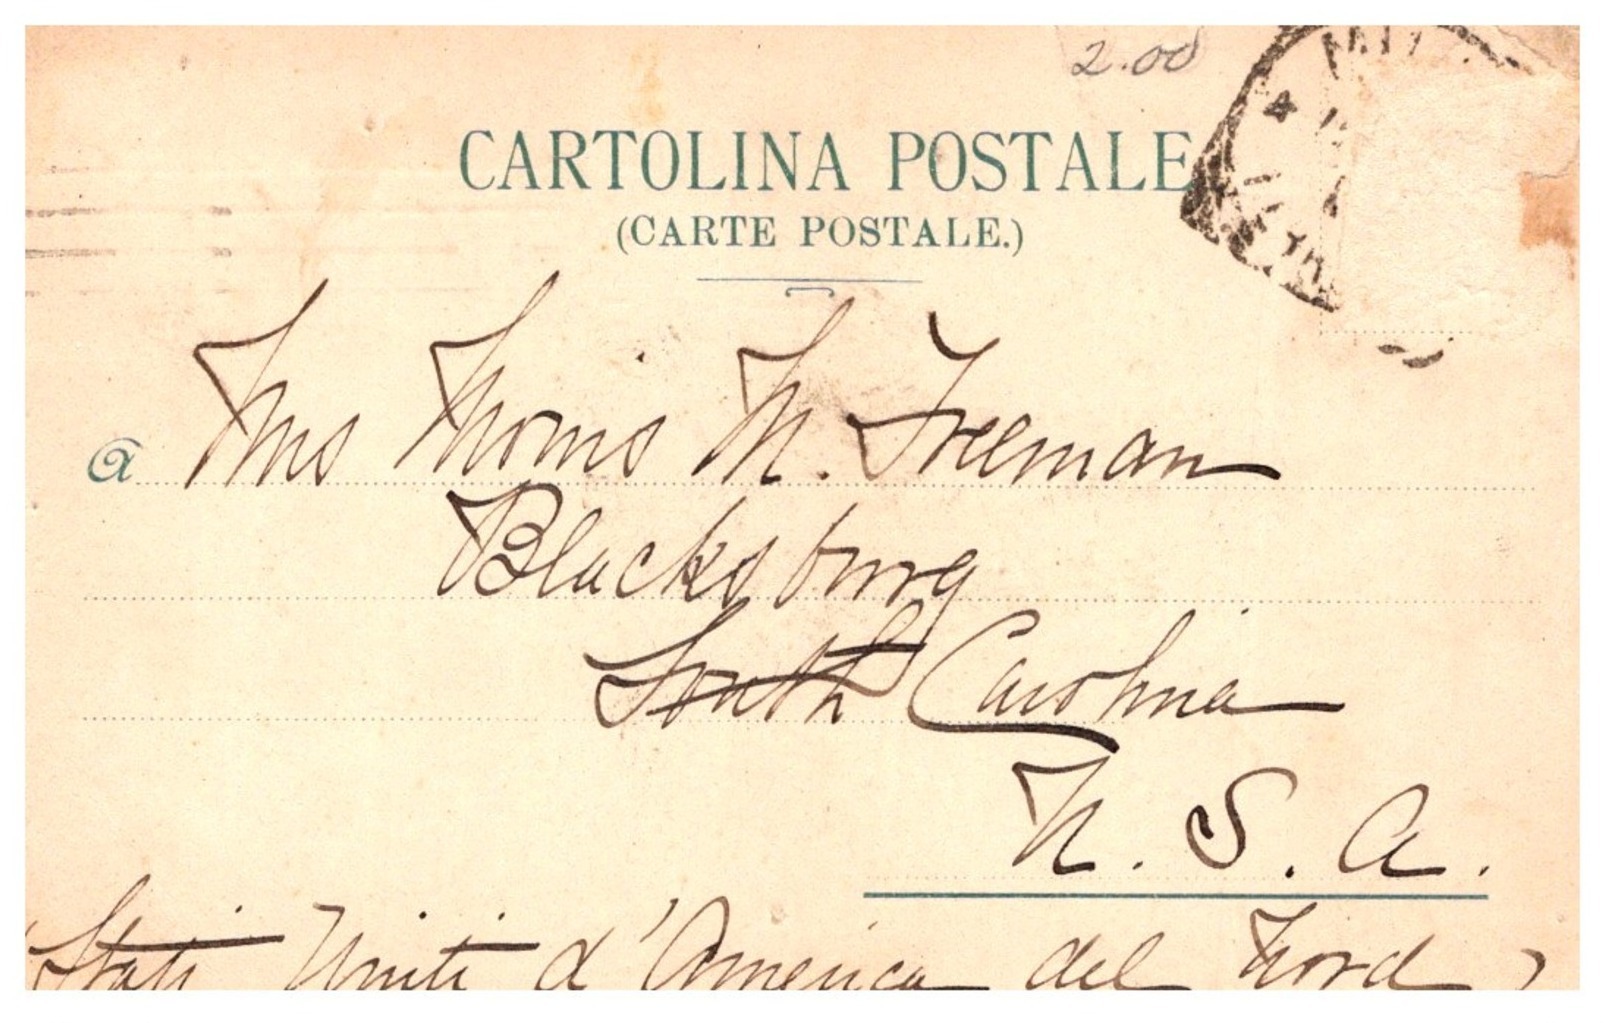 2.00
CARTOLINA POSTALE
(CARTE POSTALE.)
a Mrs Morris M. Freeman
Blacksburg
South Carolina
U. S. A.
Stati Uniti d'America del Nord